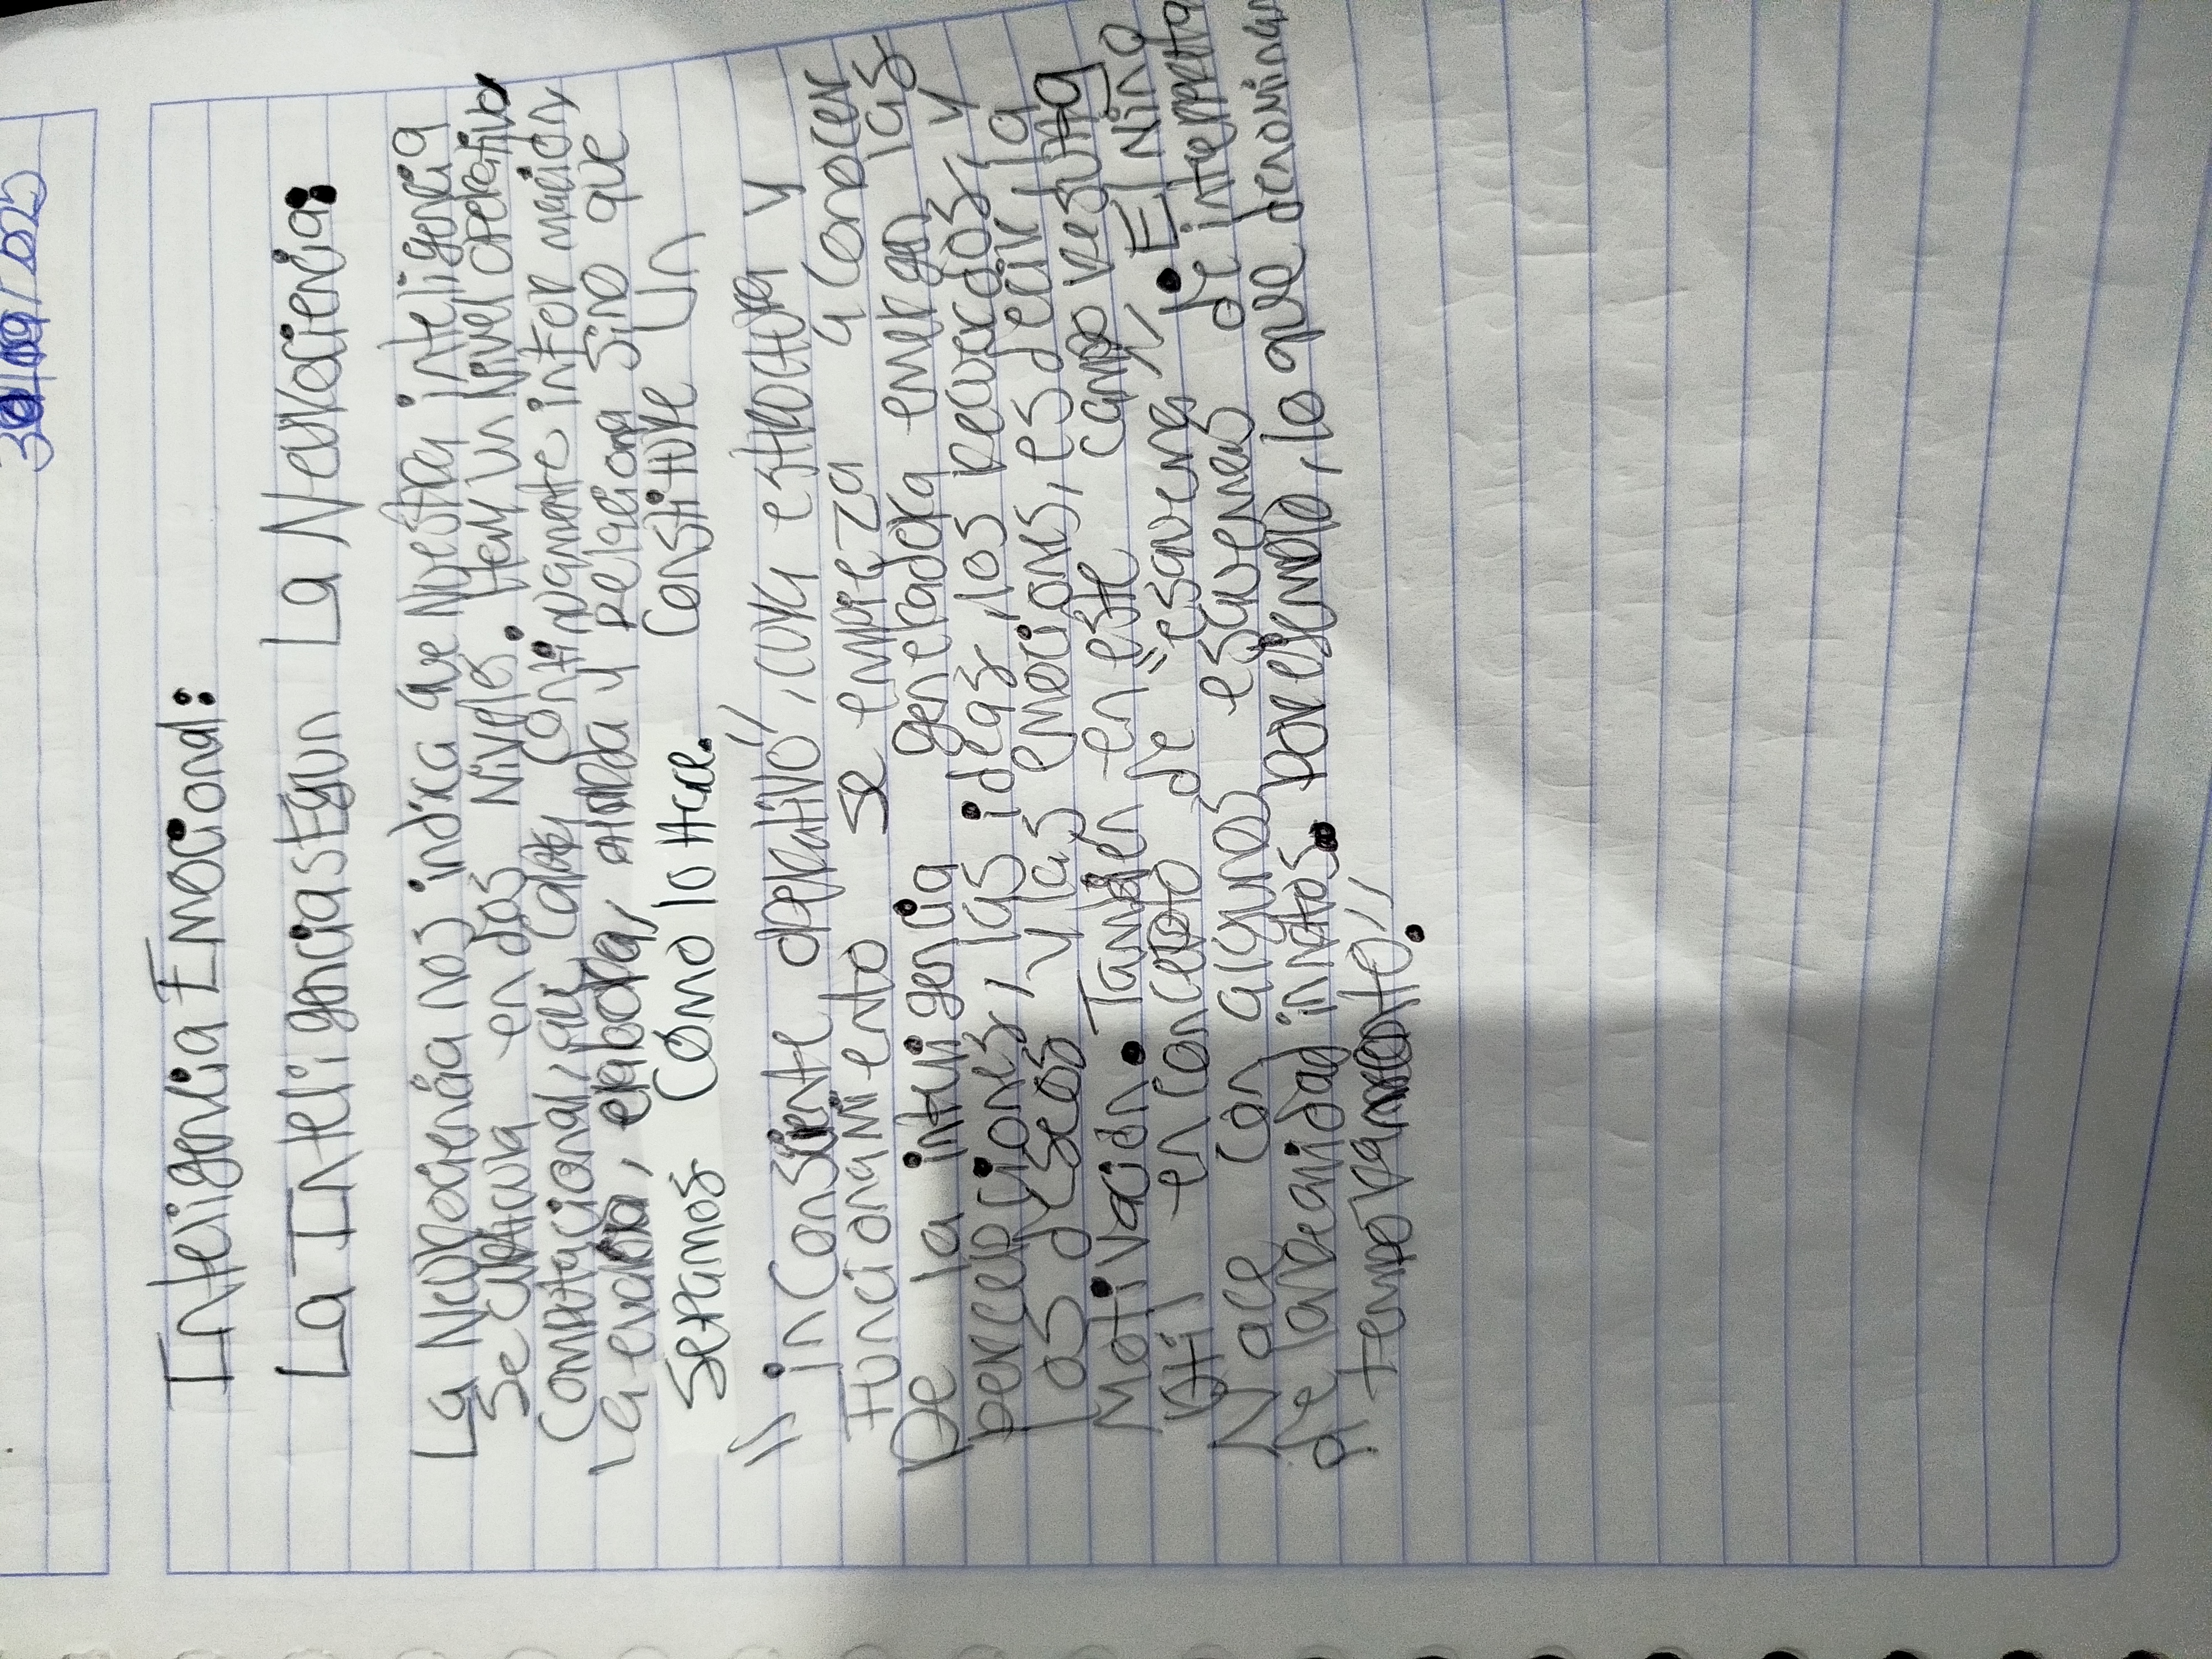 Inteligenlia Emocional:
La Inteligencia segun La Neurociencia:
La Neurociencia nos indica que Nuestra inteligencia
Se ejercita en dos Niveles. Tiene un Nivel operativo
Computacional, que capta continuamente información
la evalúa, elabora, aborda y relaciona sino que
Sepamos Como lo Hace. Constituye Un
"inconsiente operativo", cuya estructura y
Funcionamiento se empieza a conocer
De la inteligencia generadora emergen las
percepciones, las ideas, los recuerdos, y
Los deseos y las emociones, es decir, la
Motivación. También en este campo resulta
útil en concepto de "esquema". El Niño
Nace con algunos esquemas de interpreta
de la realidad innatos. por ejemplo, lo que denominan
temperamento".